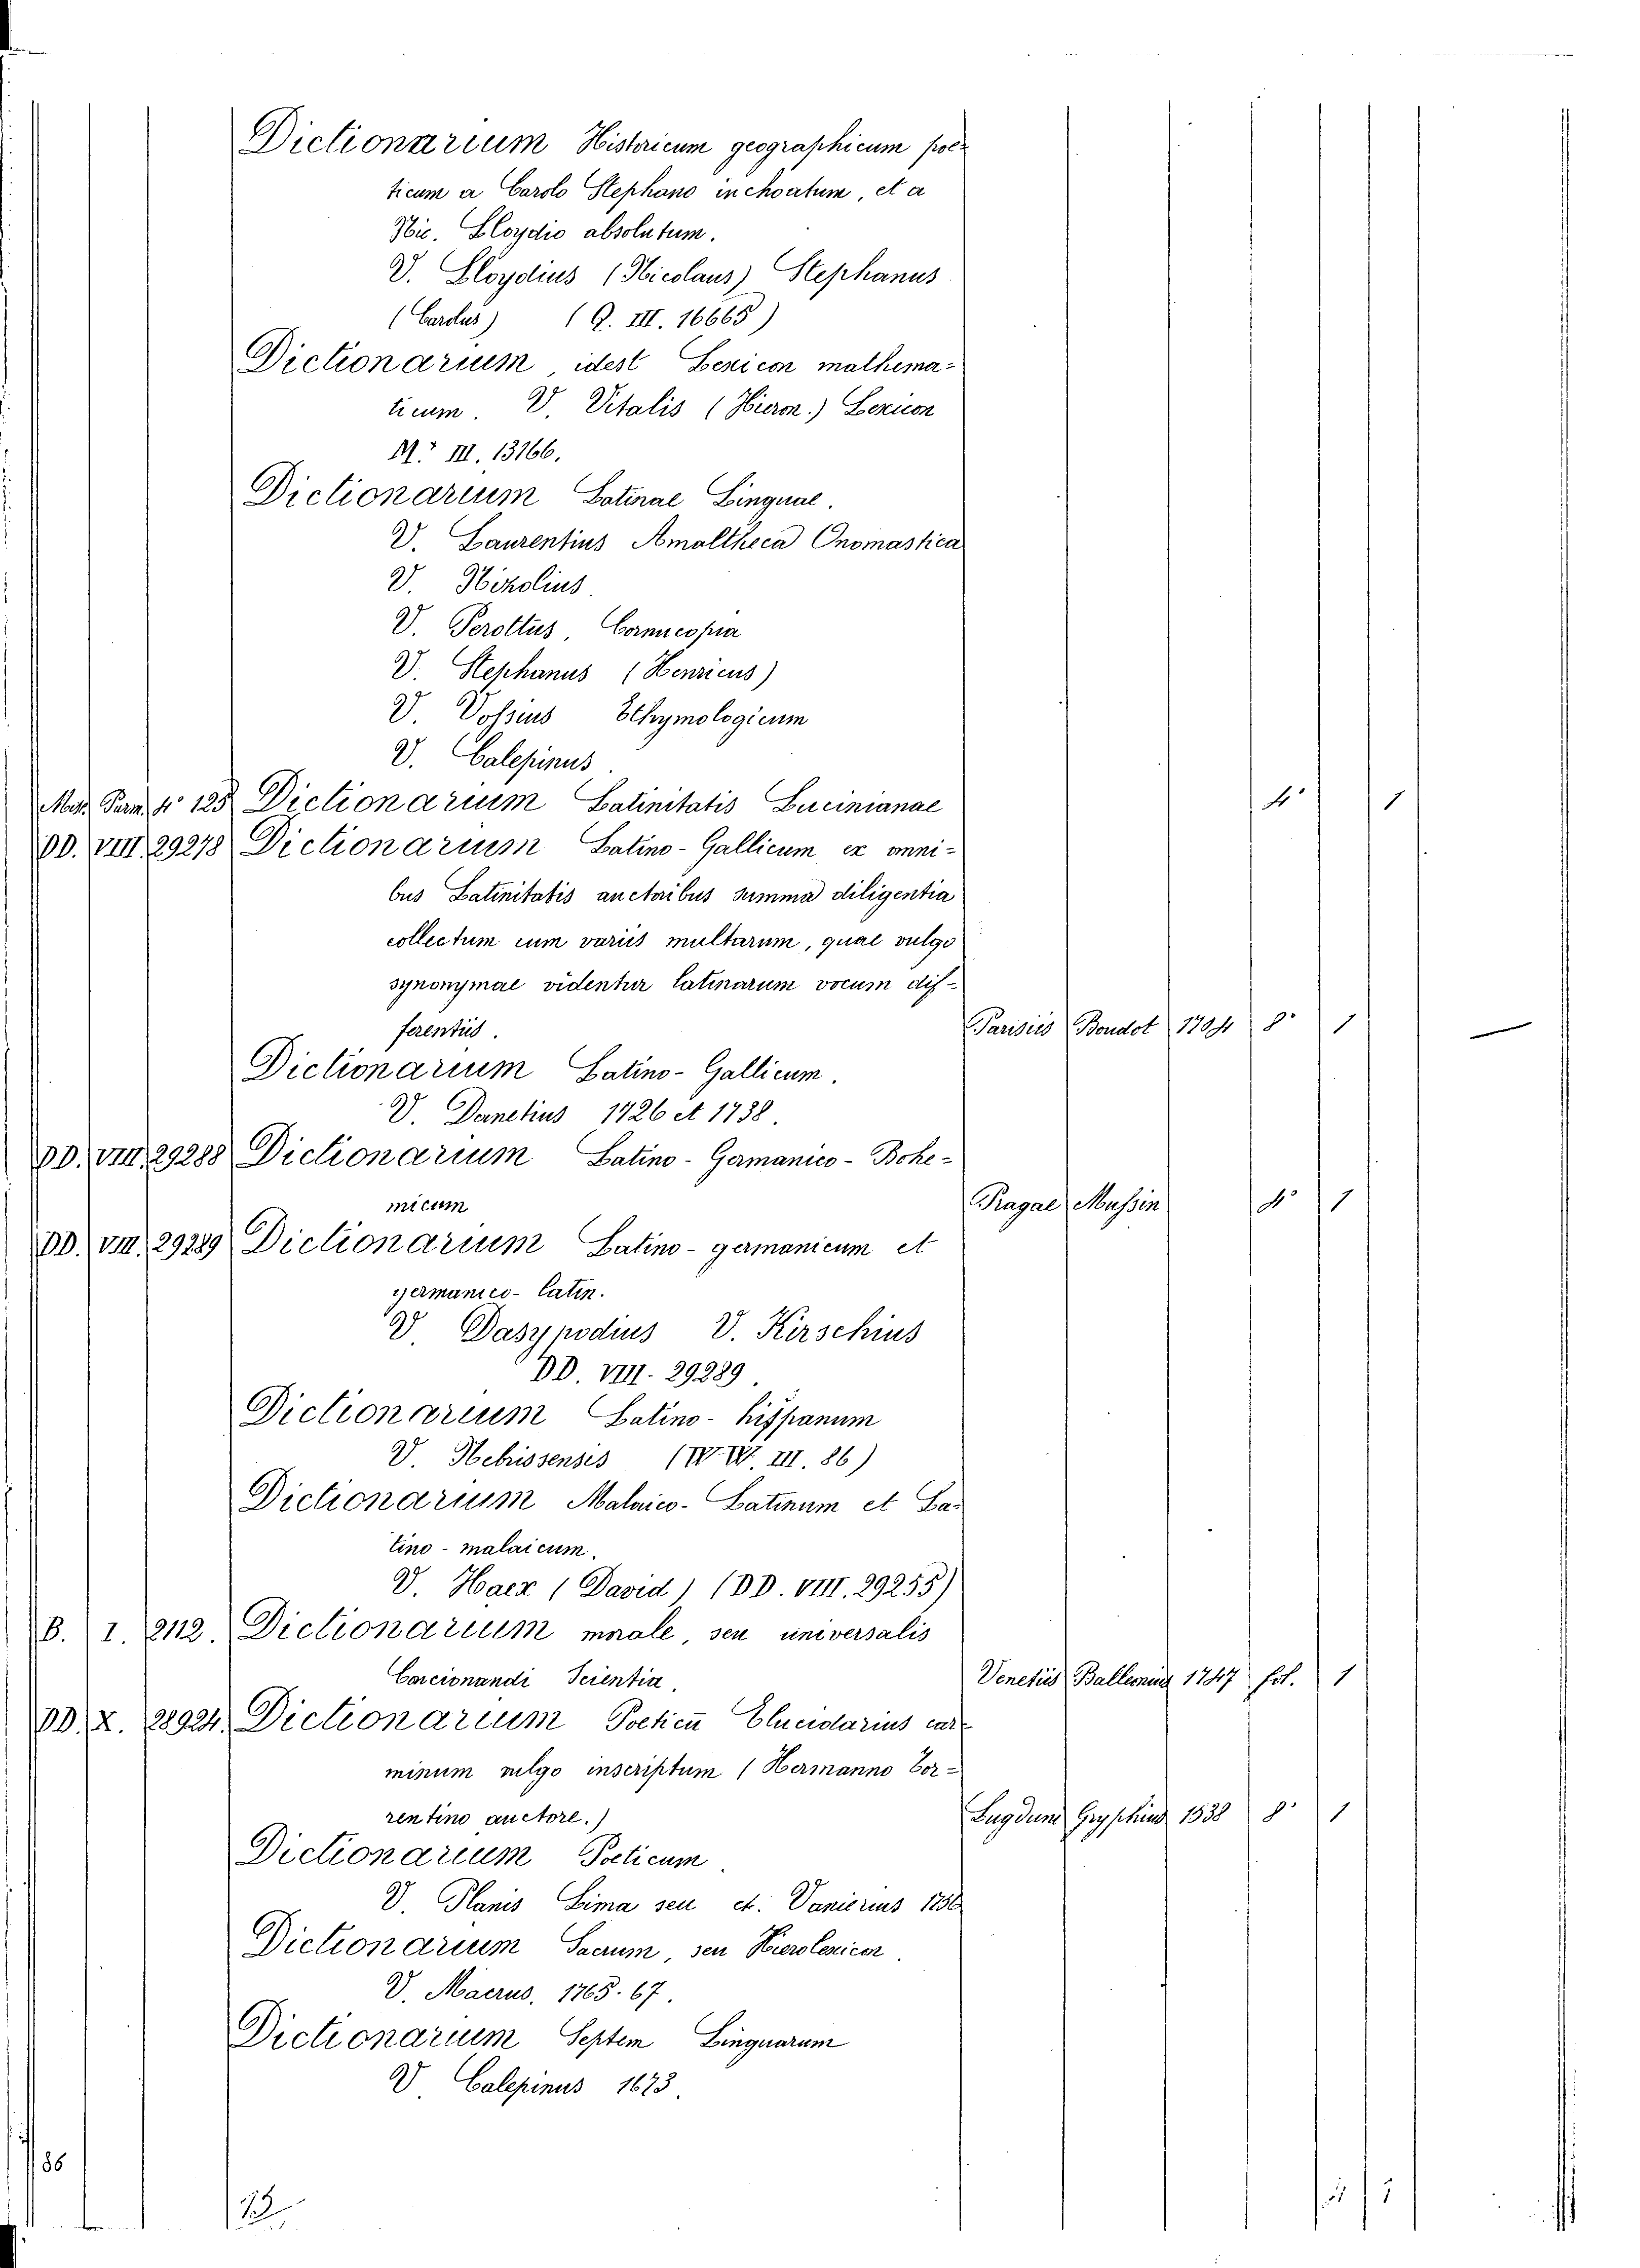 Dictionarium Historicum geographicum poe-
ticum a Carolo Stephano inchoatum, et a
Nic. Lloydio absolutum.
V. Lloydius (Nicolaus) Stephanus
(Carolus) (Q. III. 16665)
Dictionarium, idest Lexicon mathema-
ticum. V. Vitalis (Hieron.) Lexicon
M. III. 13166.
Dictionarium Latinae Linguae.
V. Laurentius Amaltheca Onomastica
V. Nizolius.
V. Perottus, Cornucopia
V. Stephanus (Henricus)
V. Vossius Ethymologicum
V. Calepinus.
Mss. Parm. 4° 125 Dictionarium Latinitatis Lucinianae 4° 1
DD. VIII. 29278 Dictionarium Latino-Gallicum ex omni-
bus Latinitatis auctoribus summa diligentia
collectum cum variis multarum, quae vulgo
synonymae videntur latinarum vocum dif-
ferentiis. Parisiis Boudot 1704 8° 1 —
Dictionarium Latino-Gallicum.
V. Danetius 1726 et 1738.
DD. VIII. 29288 Dictionarium Latino-Germanico-Bohe-
micum Pragae Mussin 4° 1
DD. VIII. 29289 Dictionarium Latino-germanicum et
germanico-latin.
V. Dasypodius V. Kirschius
DD. VIII. 29289.
Dictionarium Latino-hispanum
V. Nebrissensis (WW. III. 86)
Dictionarium Malaico-Latinum et La-
tino-malaicum.
V. Haex (David) (DD. VIII. 29255)
B. I. 2112. Dictionarium morale, seu universalis
Concionandi Scientia. Venetiis Balleonius 1747 fol. 1
DD. X. 28924. Dictionarium Poeticũ Elucidarius car-
minum vulgo inscriptum (Hermanno Tor-
rentino auctore.) Lugduni Gryphius 1538 8° 1
Dictionarium Poeticum.
V. Planis Lima seu et. Vanierius 1736
Dictionarium Sacrum, seu Hierolexicon.
V. Macrus, 1765. 67.
Dictionarium Septem Linguarum
V. Calepinus 1673.
86